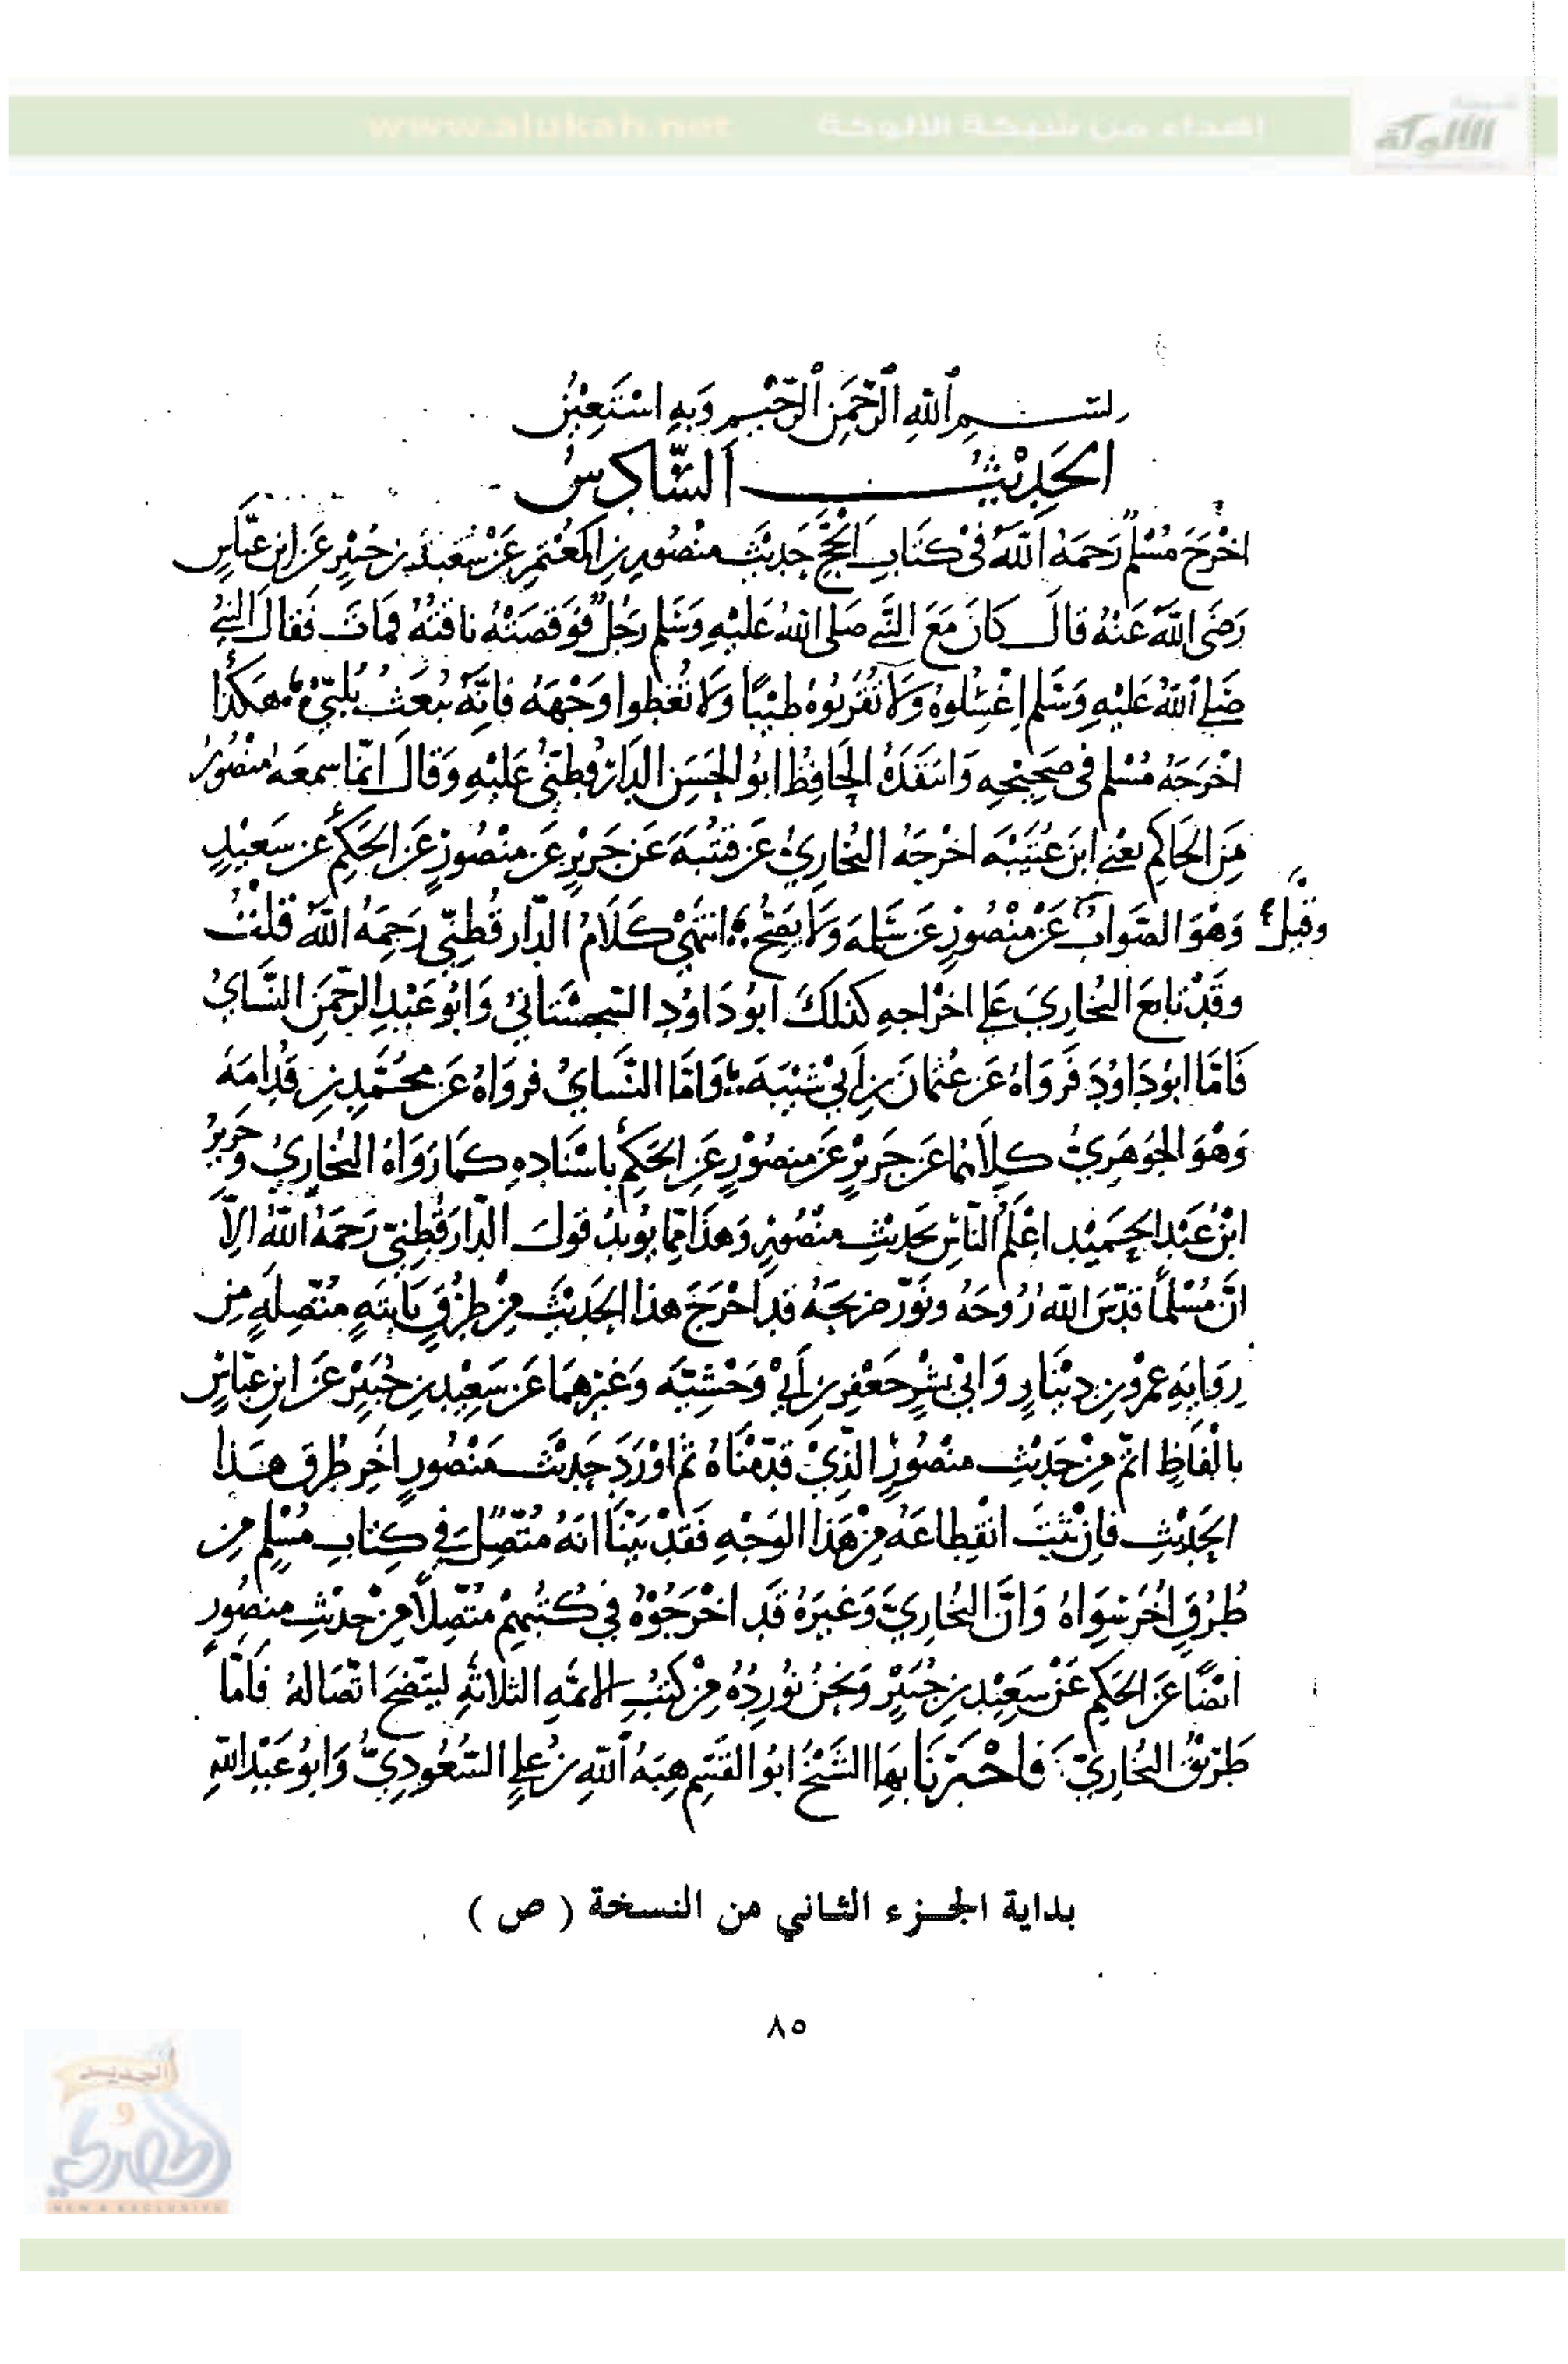 www.alukah.net إهداء من شبكة الألوكة
شبكة الألوكة
بسم الله الرحمن الرحيم وبه استعين
الحديث السادس
اخرج مسلم رحمه الله في كتاب الحج حديث منصور بن المعتمر عن سعيد بن جبير عن ابن عباس
رضي الله عنه قال كان مع النبي صلى الله عليه وسلم رجل فوقصته ناقته فمات فقال النبي
صلى الله عليه وسلم اغسلوه ولا تقربوه طيبا ولا تغطوا وجهه فانه يبعث يلبي هكذا
اخرجه مسلم في صحيحه وانتقده الحافظ ابو الحسن الدارقطني عليه وقال انما سمعه منصور
من الحاكم يعني ابن عتيبة اخرجه البخاري عن قتيبة عن جرير عن منصور عن الحكم عن سعيد
وهو الصواب عن منصور عن سلمه ولا يصح انتهى كلام الدارقطني رحمه الله قلت
وقيل
وقد تابع البخاري على اخراجه كذلك ابو داود السجستاني وابو عبد الرحمن النساي
فاما ابو داود فرواه عن عثمان بن ابي شيبة واما النساي فرواه عن محمد بن قدامة
وهو الجوهري كلاهما عن جرير عن منصور عن الحكم باسناده كما رواه البخاري وجرير
ابن عبد الحميد اعلم الناس بحديث منصور وهذا مما يويد قول الدارقطني رحمه الله الا
ان مسلما قدس الله روحه ونور ضريحه قد اخرج هذا الحديث من طرق ثابتة متصلة من
رواية عمرو بن دينار وابي بشر جعفر بن ابي وحشية وغيرهما عن سعيد بن جبير عن ابن عباس
بالفاظ اتم من حديث منصور الذي قدمناه ثم اورد حديث منصور اخر طرق هذا
الحديث فان ثبت انقطاعه من هذا الوجه فقد بينا انه متصل في كتاب مسلم من
طرق اخر سواه وان البخاري وغيره قد اخرجوه في كتبهم متصلا من حديث منصور
ايضا عن الحكم عن سعيد بن جبير ونحن نورده من كتب الائمه الثلاثة ليتضح اتصاله فاما
طريق البخاري فاخبرنا بها الشيخ ابو القسم هبة الله بن علي السعودي وابو عبد الله
بداية الجزء الثاني من النسخة ( ص )
٨٥
الجديد
و
الحصري
NEW & EXCLUSIVE